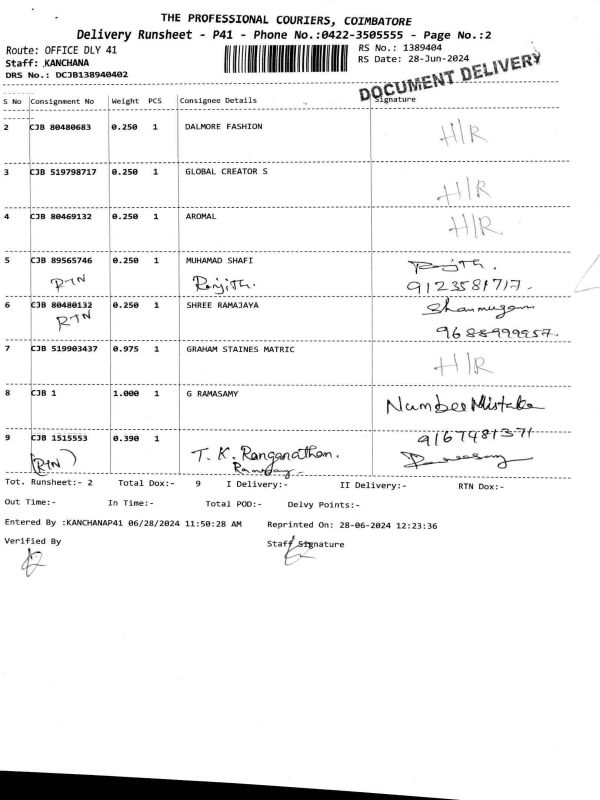 THE PROFESSIONAL COURIERS, COIMBATORE
Delivery Runsheet - P41 - Phone No.:0422-3505555 - Page No.:2
Route: OFFICE DLY 41 RS No.: 1389404
Staff: KANCHANA RS Date: 28-Jun-2024
DRS No.: DCJB138940402
DOCUMENT DELIVERY
S No Consignment No Weight PCS Consignee Details Signature
2 CJB 80480683 0.250 1 DALMORE FASHION H/R
3 CJB 519798717 0.250 1 GLOBAL CREATOR S H/R
4 CJB 80469132 0.250 1 AROMAL H/R
5 CJB 89565746 0.250 1 MUHAMAD SHAFI
RTN Ranjith. Ranjith.
9123581717-
6 CJB 80480132 0.250 1 SHREE RAMAJAYA Shanmugam
RTN 9688999957-
7 CJB 519903437 0.975 1 GRAHAM STAINES MATRIC H/R
8 CJB 1 1.000 1 G RAMASAMY Number Mistake
9 CJB 1515553 0.390 1 9167481371
(RTN) T. K. Ranganathan.
Tot. Runsheet:- 2 Total Dox:- 9 I Delivery:- II Delivery:- RTN Dox:-
Out Time:- In Time:- Total POD:- Delvy Points:-
Entered By :KANCHANAP41 06/28/2024 11:50:28 AM Reprinted On: 28-06-2024 12:23:36
Verified By Staff Signature